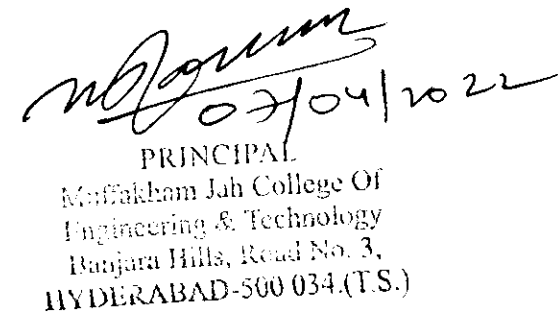 07/04/2022
PRINCIPAL
Muffakham Jah College Of
Engineering & Technology
Banjara Hills, Road No. 3,
HYDERABAD-500 034.(T.S.)